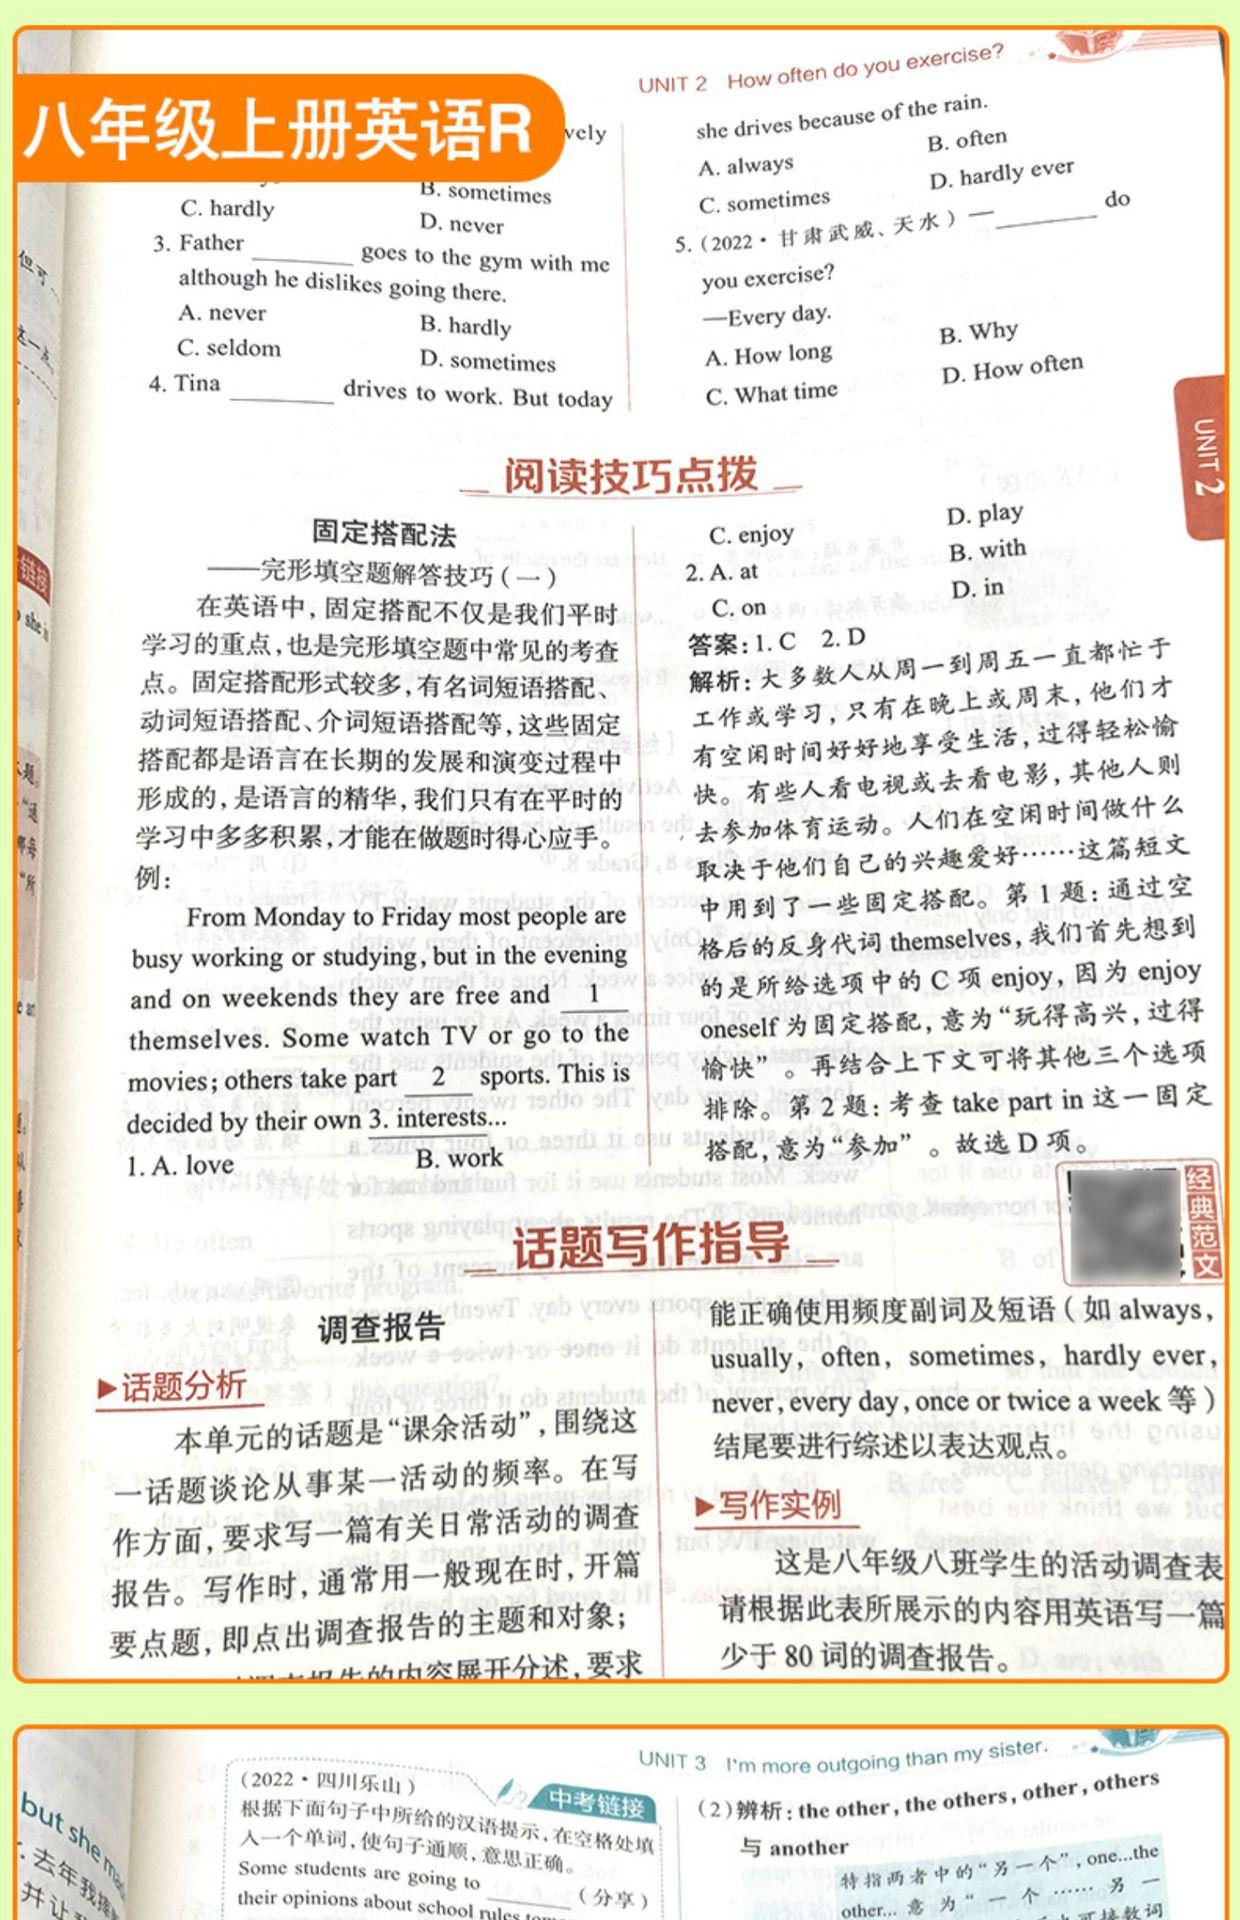 八年级上册英语R
UNIT 2 How often do you exercise?
vely
B. sometimes
C. hardly
D. never
3. Father ______ goes to the gym with me
although he dislikes going there.
A. never
B. hardly
C. seldom
D. sometimes
4. Tina ______ drives to work. But today
she drives because of the rain.
A. always
B. often
C. sometimes
D. hardly ever
5. (2022·甘肃武威、天水) — ______ do
you exercise?
—Every day.
A. How long
B. Why
C. What time
D. How often
UNIT 2
阅读技巧点拨
固定搭配法
——完形填空题解答技巧(一)
在英语中,固定搭配不仅是我们平时
学习的重点,也是完形填空题中常见的考查
点。固定搭配形式较多,有名词短语搭配、
动词短语搭配、介词短语搭配等,这些固定
搭配都是语言在长期的发展和演变过程中
形成的,是语言的精华,我们只有在平时的
学习中多多积累,才能在做题时得心应手。
例:
From Monday to Friday most people are
busy working or studying, but in the evening
and on weekends they are free and 1
themselves. Some watch TV or go to the
movies; others take part 2 sports. This is
decided by their own 3. interests...
1. A. love
B. work
C. enjoy
D. play
2. A. at
B. with
C. on
D. in
答案:1. C 2. D
解析:大多数人从周一到周五一直都忙于
工作或学习,只有在晚上或周末,他们才
有空闲时间好好地享受生活,过得轻松愉
快。有些人看电视或去看电影,其他人则
去参加体育运动。人们在空闲时间做什么
取决于他们自己的兴趣爱好……这篇短文
中用到了一些固定搭配。第1题:通过空
格后的反身代词 themselves,我们首先想到
的是所给选项中的 C 项 enjoy,因为 enjoy
oneself 为固定搭配,意为“玩得高兴,过得
愉快”。再结合上下文可将其他三个选项
排除。第2题:考查 take part in 这一固定
搭配,意为“参加”。故选 D 项。
经典范文
话题写作指导
调查报告
▶话题分析
本单元的话题是“课余活动”,围绕这
一话题谈论从事某一活动的频率。在写
作方面,要求写一篇有关日常活动的调查
报告。写作时,通常用一般现在时,开篇
要点题,即点出调查报告的主题和对象;
调查报告的内容展开分述,要求
能正确使用频度副词及短语(如 always,
usually, often, sometimes, hardly ever,
never, every day, once or twice a week 等)
结尾要进行综述以表达观点。
▶写作实例
这是八年级八班学生的活动调查表
请根据此表所展示的内容用英语写一篇
少于 80 词的调查报告。
UNIT 3 I'm more outgoing than my sister.
but she ma
去年我摔
并让
(2022·四川乐山)
中考链接
根据下面句子中所给的汉语提示,在空格处填
入一个单词,使句子通顺,意思正确。
Some students are going to ______ (分享)
their opinions about school rules
(2)辨析:the other, the others, other, others
与 another
特指两者中的“另一个”,one...the
other... 意为“一个……另一